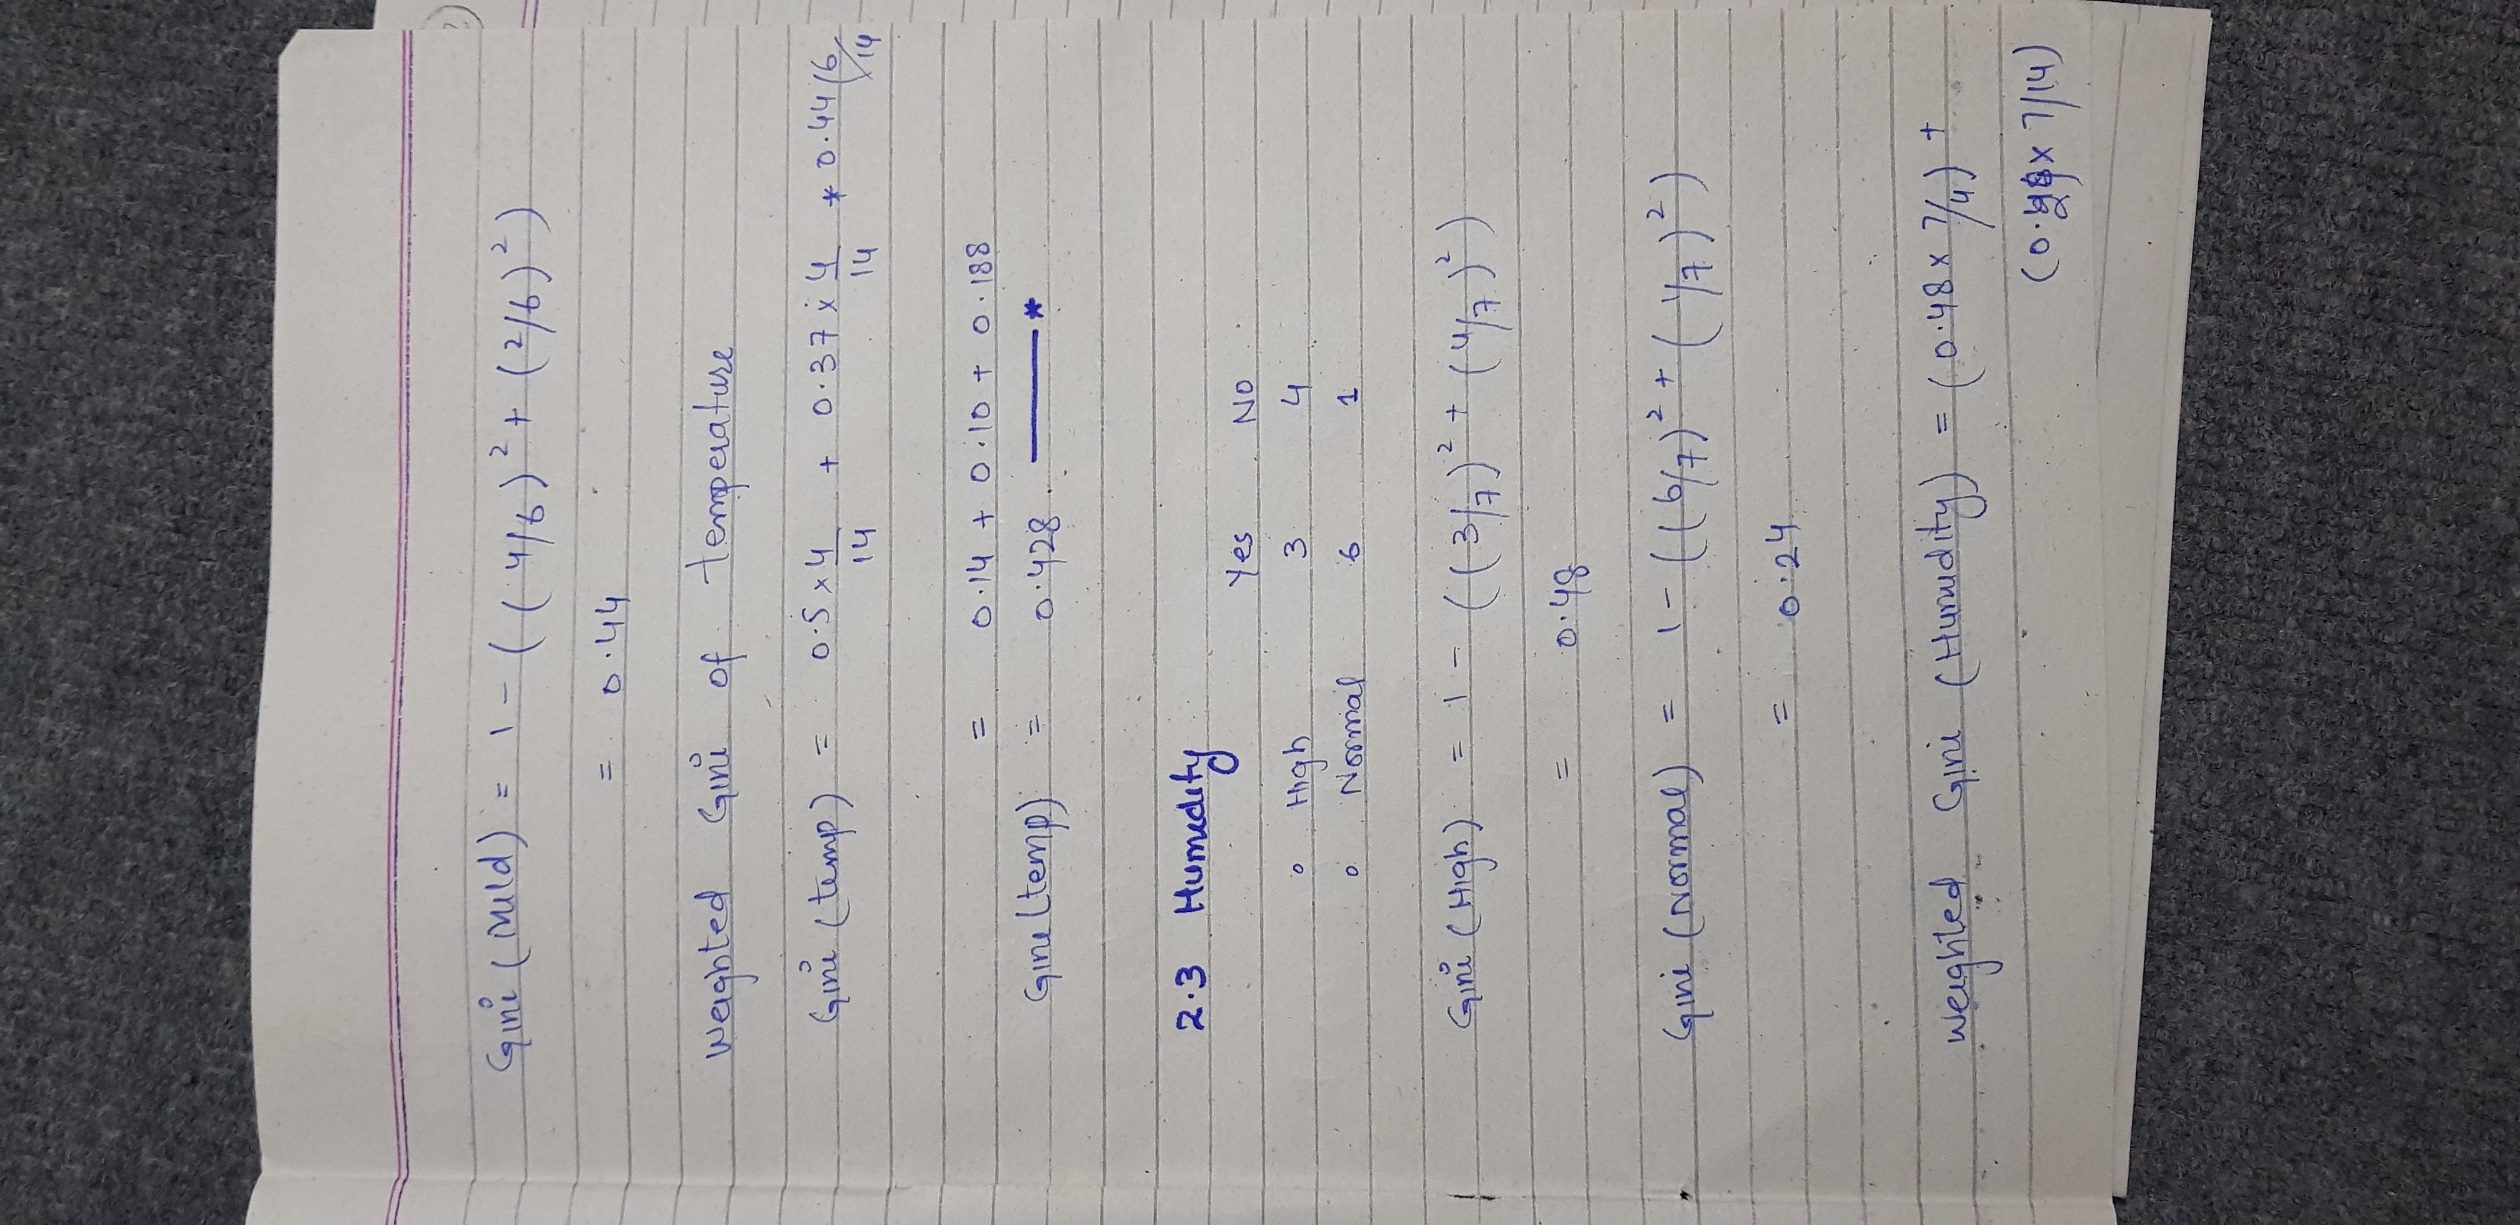 Gini (Mild) = 1 - ((4/6)² + (2/6)²)
= 0.44
Weighted Gini of temperature
Gini (temp) = 0.5 × 4/14 + 0.37 × 4/14 * 0.44 (6/14
= 0.14 + 0.10 + 0.188
Gini (temp) = 0.428. *
2.3 Humidity
Yes No
° High 3 4
° Normal 6 1
Gini (High) = 1 - ((3/7)² + (4/7)²)
= 0.48
Gini (Normal) = 1 - ((6/7)² + (1/7)²)
= 0.24
Weighted Gini (Humidity) = (0.48 × 7/4) +
× 7/14)